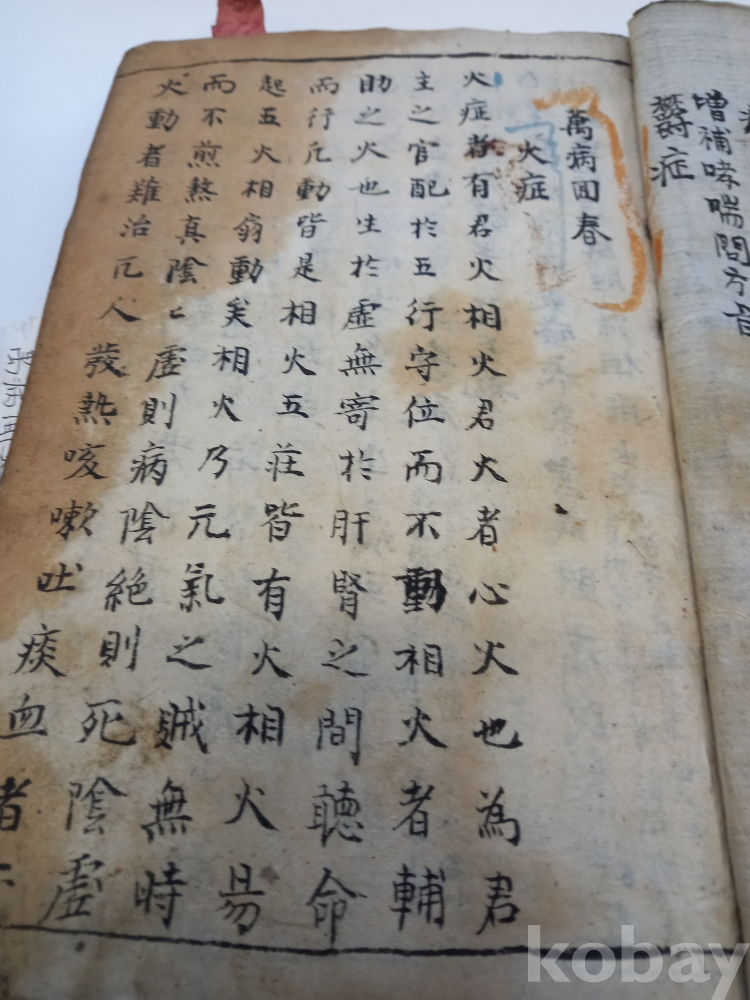 增補哮喘問方
欝症
萬病回春
火症
火症者有君火相火君火者心火也為君
主之官配於五行守位而不動相火者輔
助之火也生於虛無寄於肝腎之間聽命
而行凢動皆是相火五莊皆有火相火易
起五火相扇動矣相火乃元氣之賊無時
而不煎熬真陰〻虛則病陰絕則死陰虛
火動者難治凢人發熱咳嗽吐痰血者
kobay